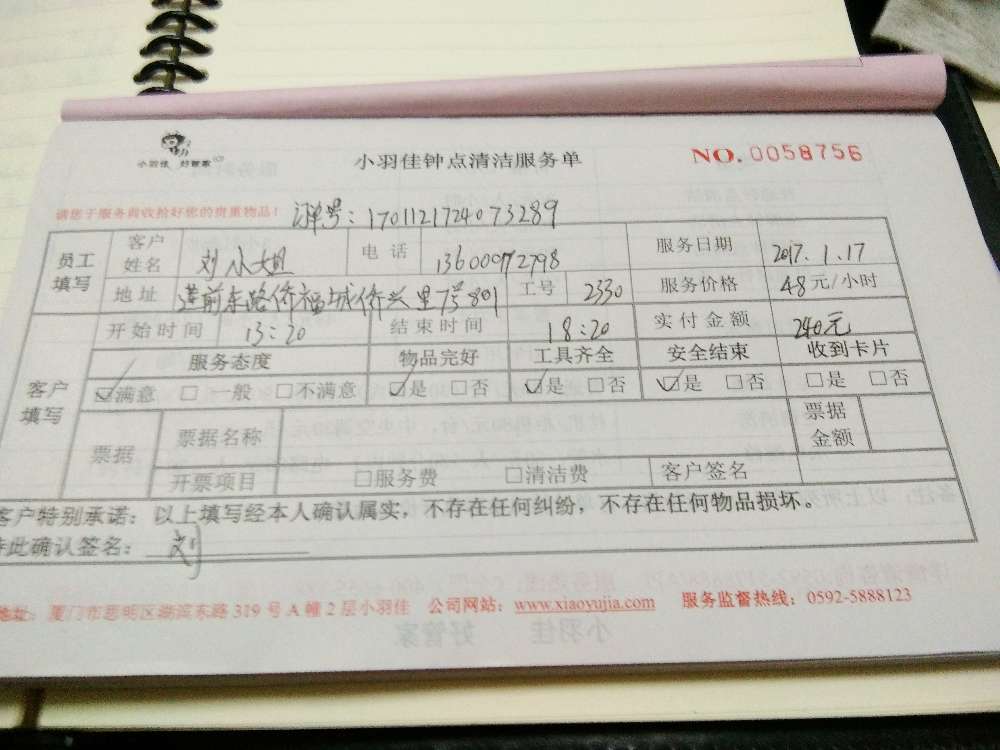 小羽佳 好管家
小羽佳钟点清洁服务单
NO.0058756
请您于服务前收拾好您的贵重物品!
订单号:1701121724073289
员工填写 客户姓名 刘小姐 电话 服务日期 2017.1.17
地址 莲前东路侨福城侨兴里7号801 工号 2330 服务价格 48元/小时
客户填写 开始时间 13:20 结束时间 18:20 实付金额 240元
服务态度 物品完好 工具齐全 安全结束 收到卡片
☑满意 □一般 □不满意 ☑是 □否 ☑是 □否 ☑是 □否 □是 □否
票据 票据名称 票据金额
开票项目 □服务费 □清洁费 客户签名
客户特别承诺:以上填写经本人确认属实,不存在任何纠纷,不存在任何物品损坏。
特此确认签名: 刘
地址:厦门市思明区湖滨东路319号A幢2层小羽佳 公司网站:www.xiaoyujia.com 服务监督热线:0592-5888123